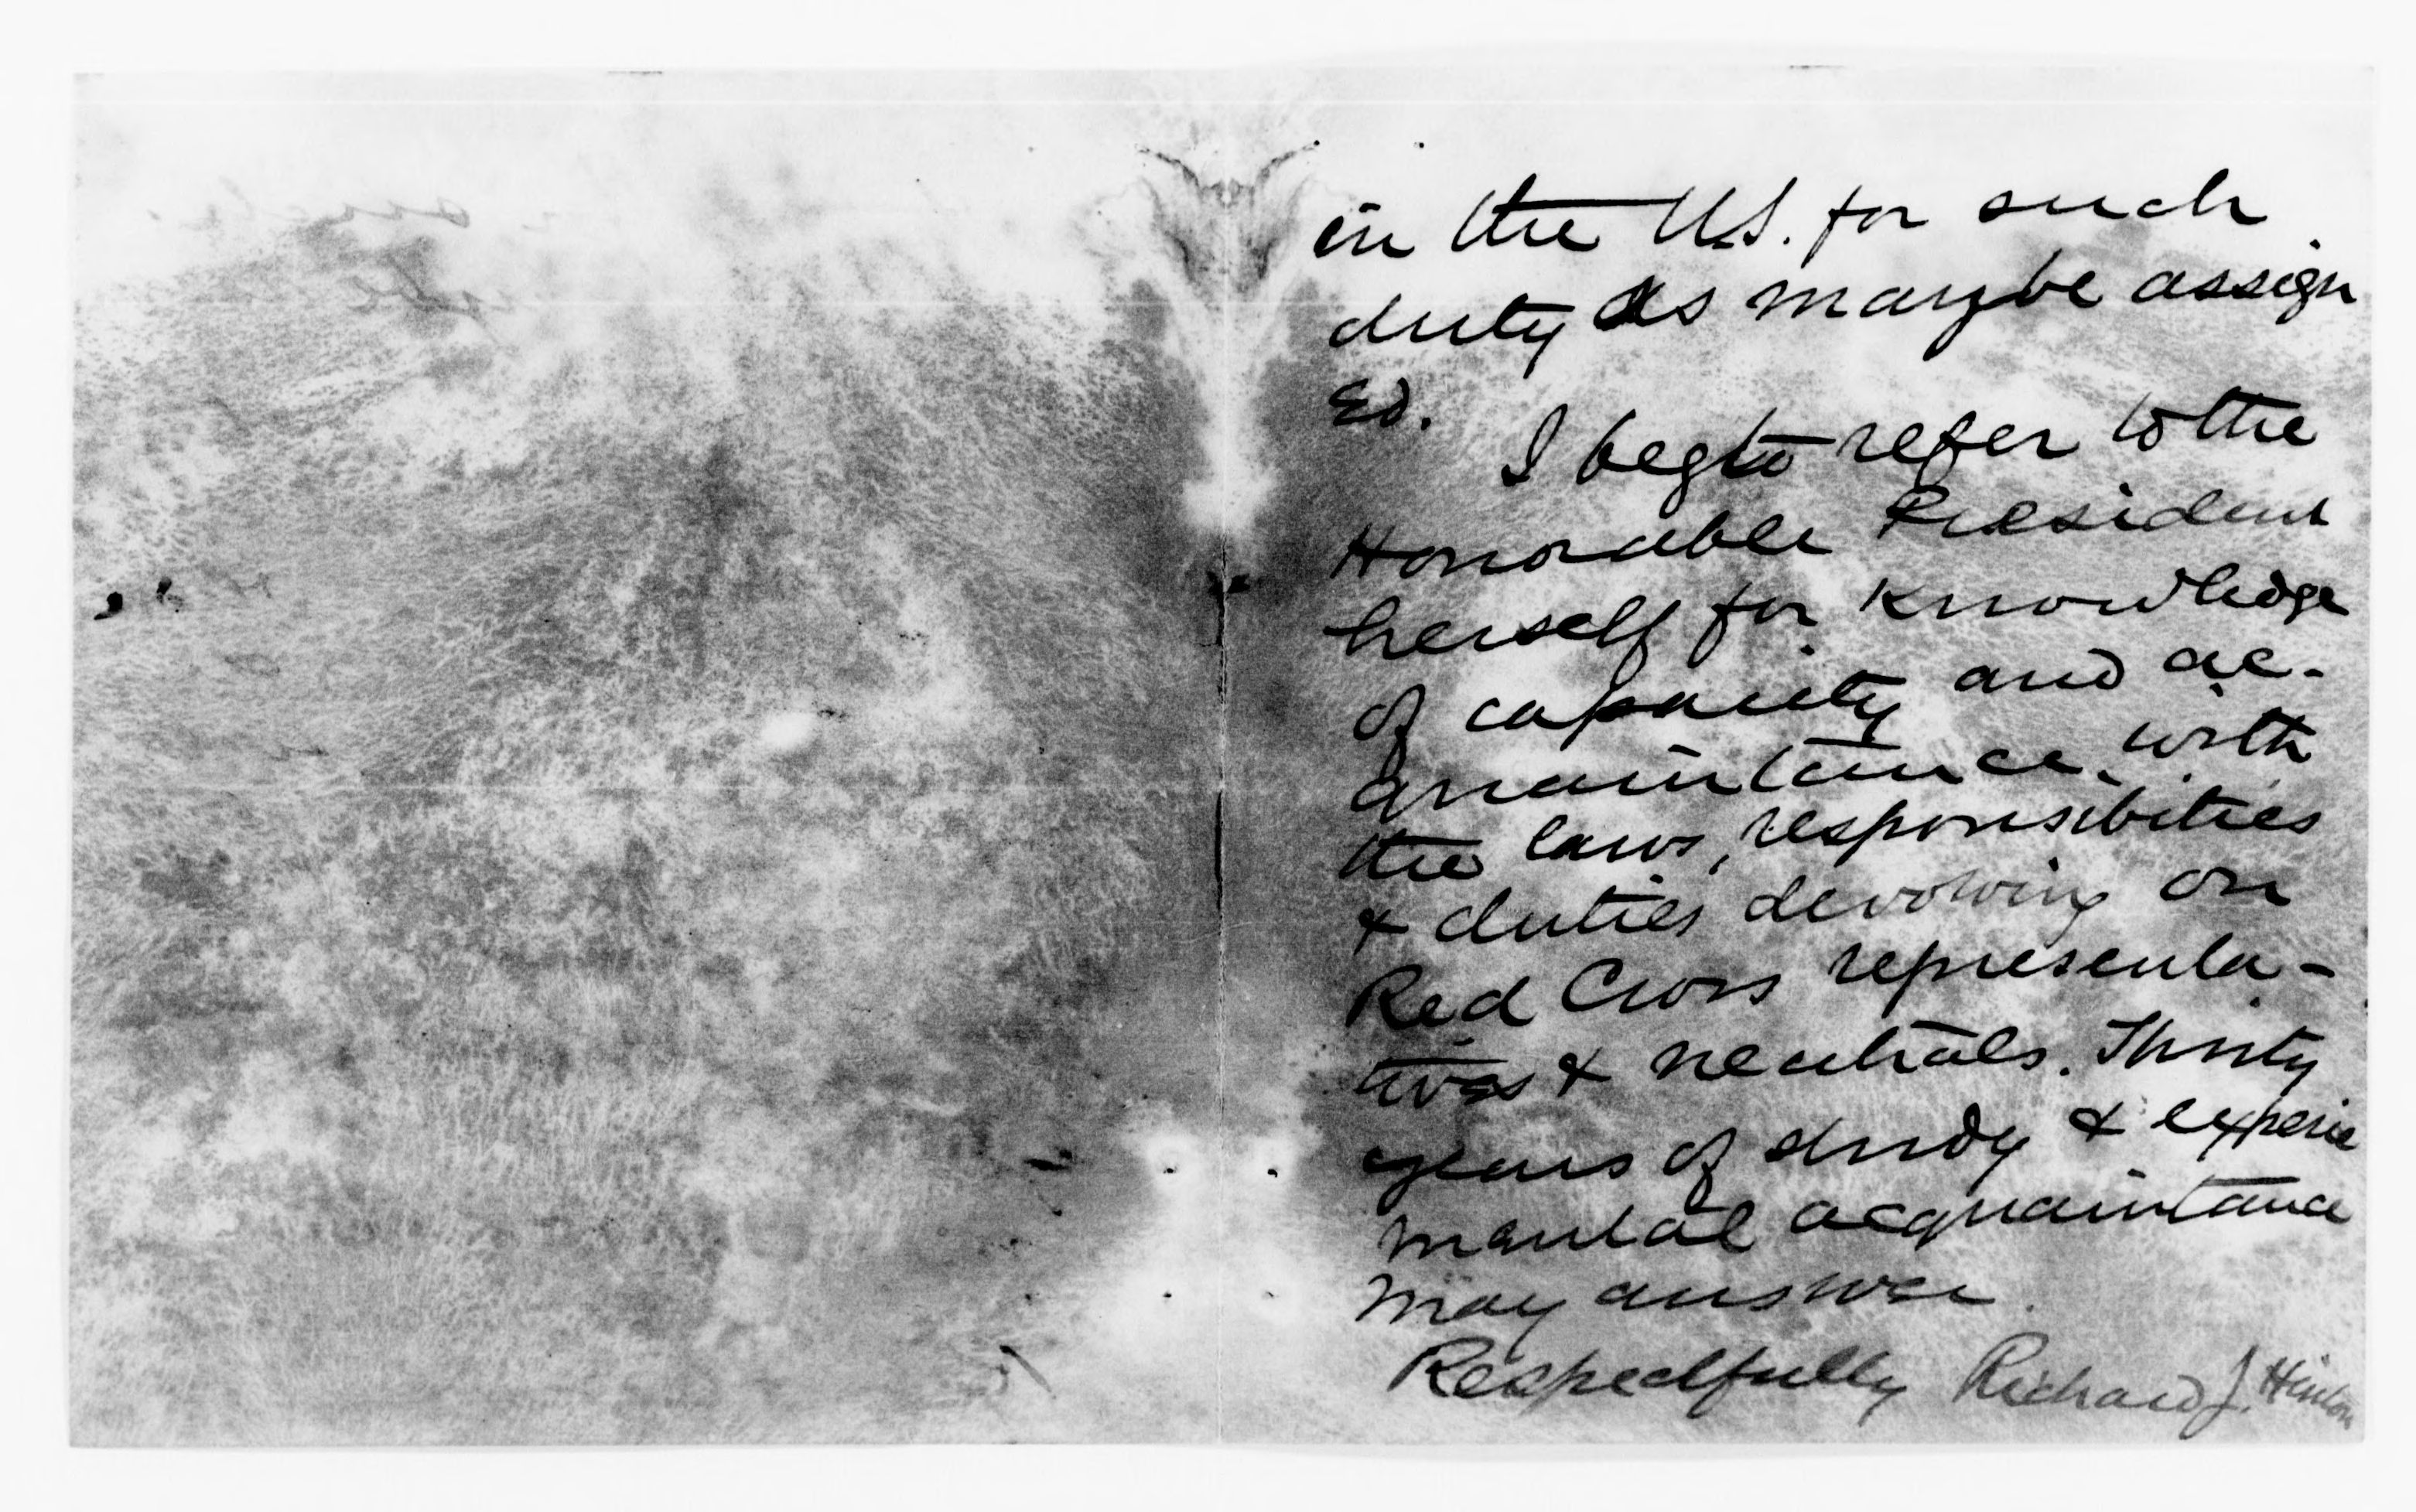 in the U.S. for such
duty as may be assign
ed.
I beg to refer to the
Honorable President
herself for Knowledge
of capacity and ac-
quaintance with
the laws, responsibities
& duties devolving on
Red Cross representa-
tives & neutrals. Thirty
years of study & experie
mental acquaintance
may answer.
Respectfully Richard J. Hinton